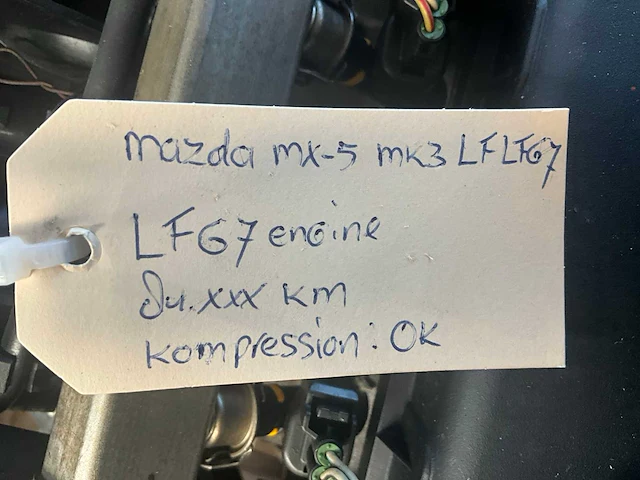 mazda mx-5 mk3 LFLF67
LF67 engine
84.xxx km
kompression: OK